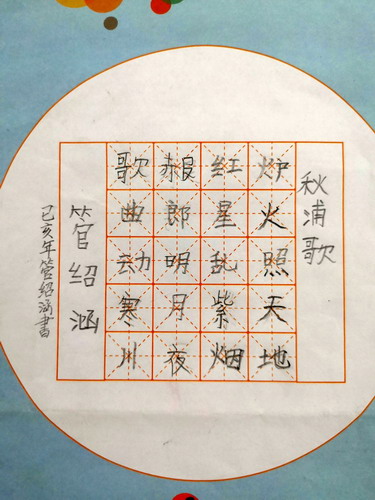 秋浦歌
炉火照天地
红星乱紫烟
赧郎明月夜
歌曲动寒川
管绍涵
己亥年管绍涵書